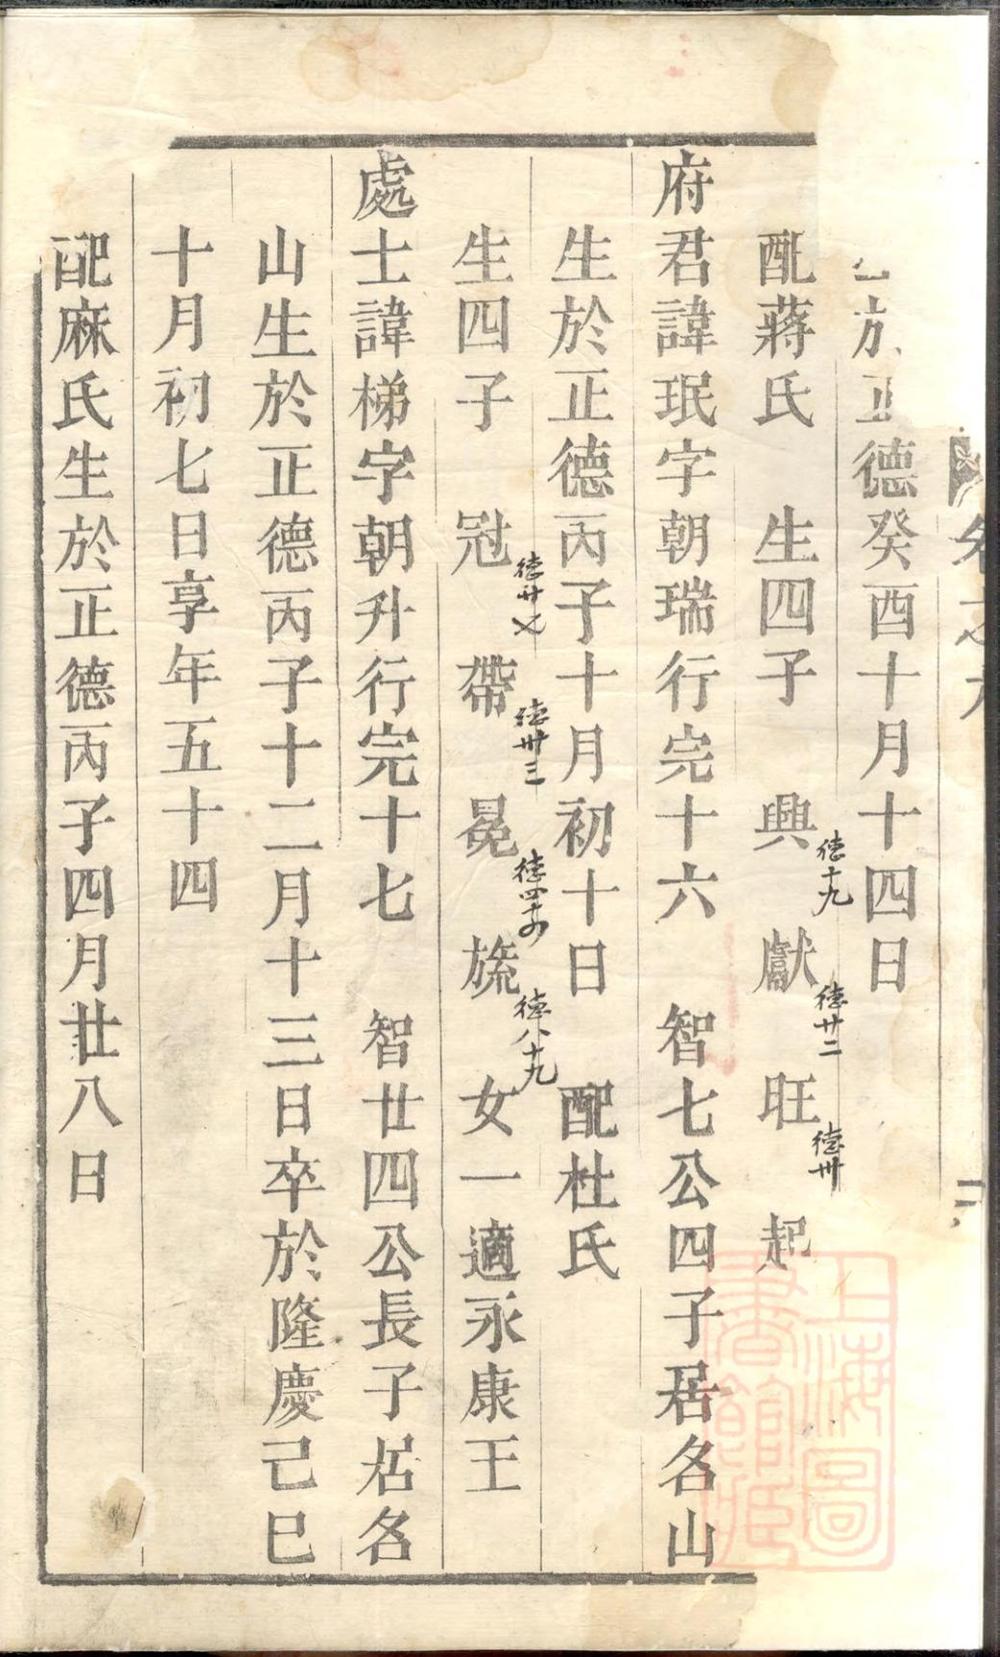 於正德癸酉十月十四日
配蔣氏　生四子　興　獻　旺　起
德十九
德廿二
德卅
府君諱珉字朝瑞行完十六　智七公四子居名山
生於正德丙子十月初十日　配杜氏
生四子　冠　帶　冕　旒　女一適永康王
德廿七
德卅三
德八十九
處士諱梯字朝升行完十七　智廿四公長子居名
山生於正德丙子十二月十三日卒於隆慶己巳
十月初七日享年五十四
配麻氏生於正德丙子四月廿八日
上海圖書館藏